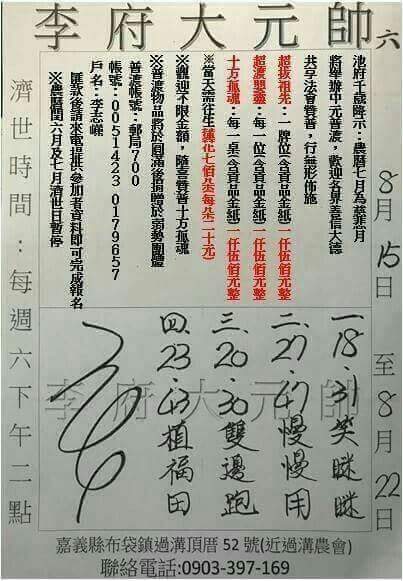 李府大元帥
六
8月15日至8月22日
池府千歲降示:農曆七月為慈悲月
將舉辦中元普渡,歡迎各界善信大德
共享法會贊普,行無形佈施
超拔祖先:一牌位(含貢品金紙)一仟伍佰元整
超渡嬰靈:每一位(含貢品金紙)一仟伍佰元整
十方孤魂:每一桌(含貢品金紙)一仟伍佰元整
※當天需往生蓮花七佰朵(每朵二十元)
※歡迎不限金額,隨喜贊普十方孤魂
※普渡物品將於圓滿後捐贈於弱勢團體
普渡帳號:郵局700
帳號:0051423 0179657
戶名:李志
匯款後請來電提供參加者資料即可完成報名
※農曆閏六月及七月濟世日暫停
一18.31笑瞇瞇
二.27.47慢慢用
三.20.30雙邊跑
四.23.43植福田
李府大元帥
濟世時間:每週六下午二點
嘉義縣布袋鎮過溝頂厝52號(近過溝農會)
聯絡電話:0903-397-169